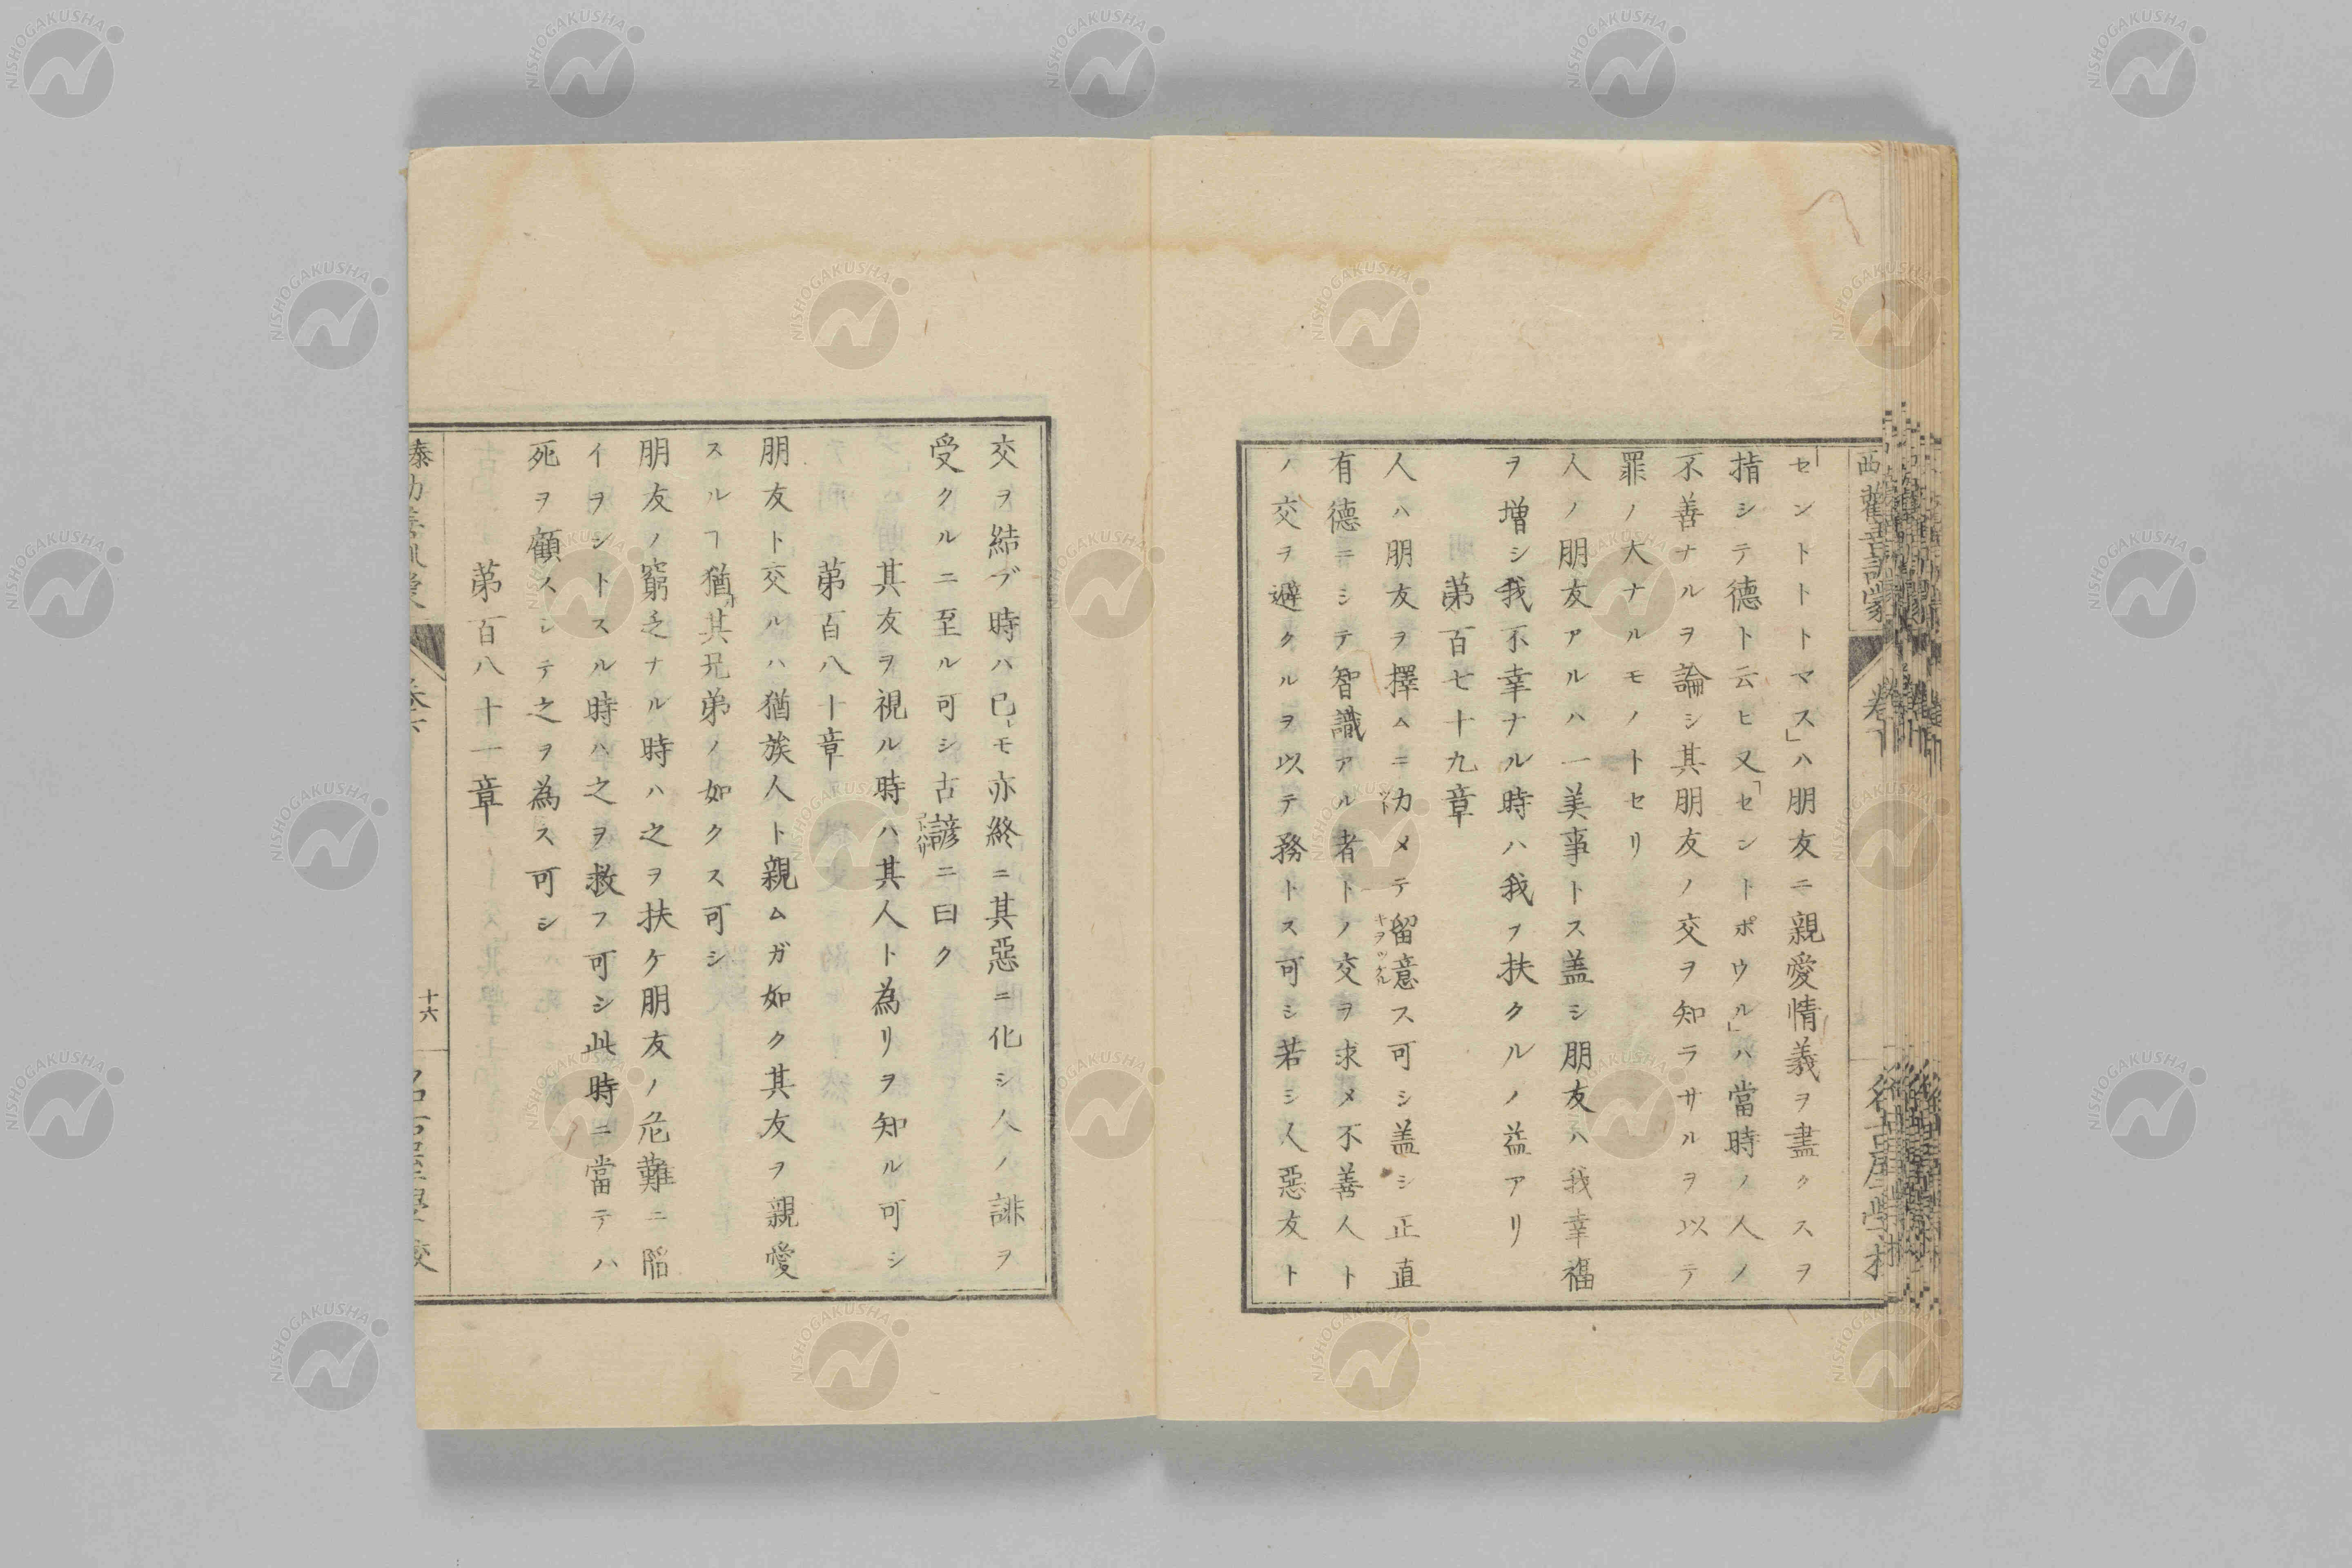 セントトトマス」ハ朋友ニ親愛情義ヲ盡クスヲ
指シテ德ト云ヒ又「セントポウル」ハ當時ノ人ノ
不善ナルヲ論シ其朋友ノ交ヲ知ラサルヲ以テ
罪ノ大ナルモノトセリ
人ノ朋友アルハ一美事トス蓋シ朋友ハ我幸福
ヲ增シ我不幸ナル時ハ我ヲ扶クルノ益アリ
第百七十九章
人ハ朋友ヲ擇ムニ力メテ留意ス可シ蓋シ正直
有德ニシテ智識アル者トノ交ヲ求メ不善人ト
ノ交ヲ避クルヲ以テ務トス可シ若シ人惡友ト
交ヲ結ブ時ハ已モ亦終ニ其惡ニ化シ人ノ誹ヲ
受クルニ至ル可シ古諺ニ曰ク
其友ヲ視ル時ハ其人ト為リヲ知ル可シ
第百八十章
朋友ト交ルハ猶族人ト親ムガ如ク其友ヲ親愛
スルヿ猶其兄弟ノ如クス可シ
朋友ノ窮乏ナル時ハ之ヲ扶ケ朋友ノ危難ニ陷
イヲシトスル時ハ之ヲ救フ可シ此時ニ當テハ
死ヲ顧スシテ之ヲ為ス可シ
第百八十一章
十六
NISHOGAKUSHA